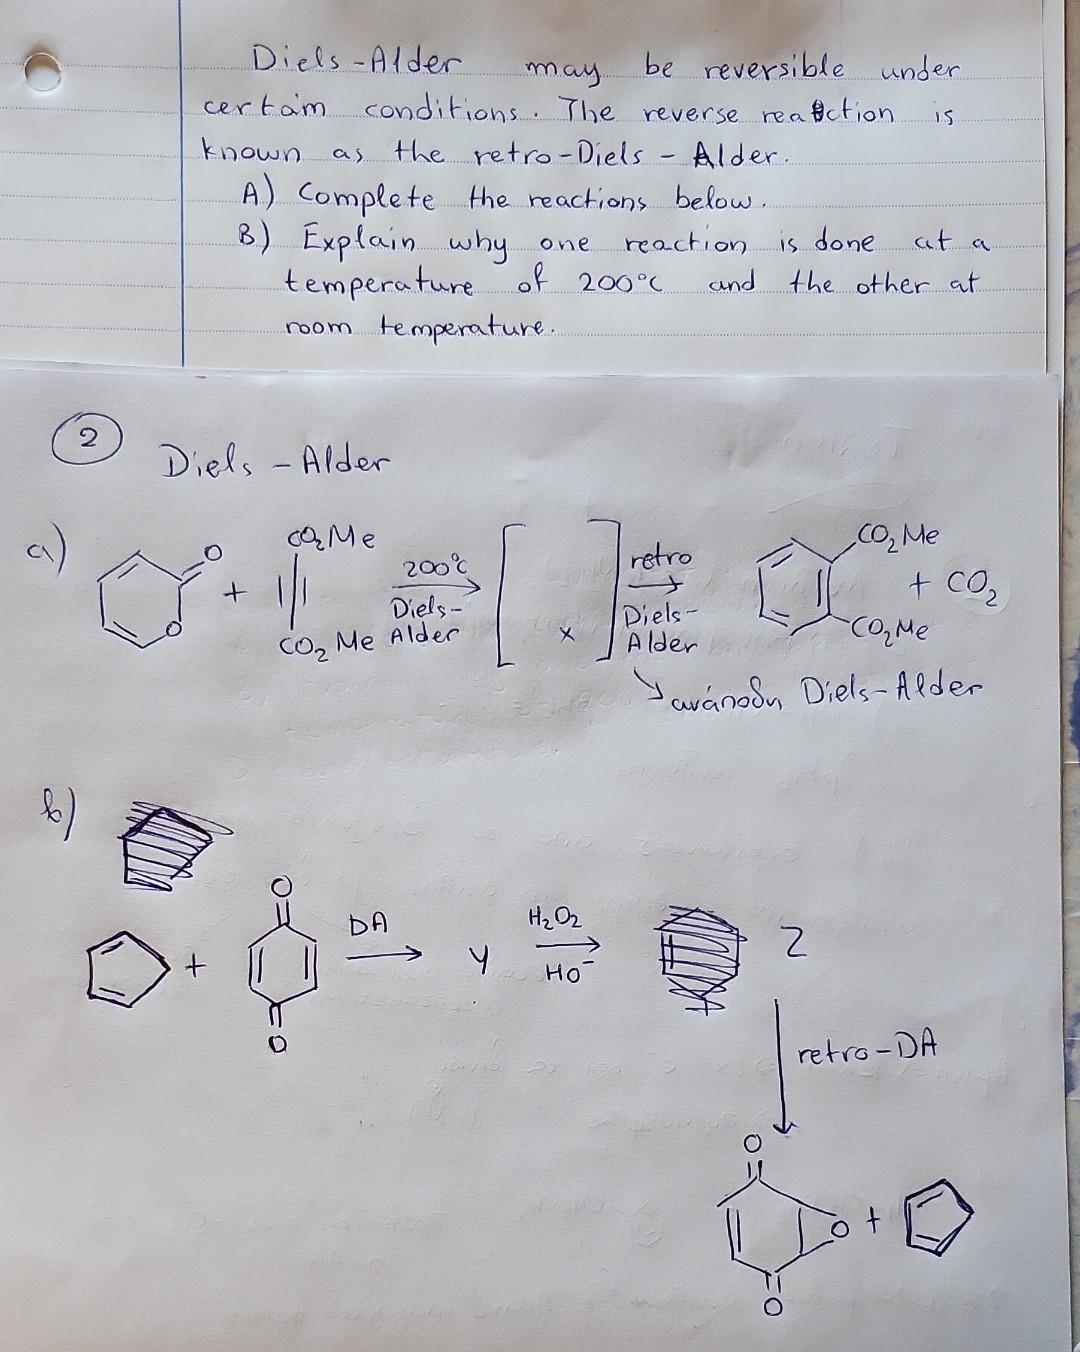 Diels-Alder may be reversible under
certain conditions. The reverse reaction is
known as the retro-Diels-Alder.
A) Complete the reactions below.
B) Explain why one reaction is done at a
temperature of 200°C and the other at
room temperature.
2
Diels-Alder
a)
O
O
+
CO₂Me
CO₂Me
200°C
Diels-
Alder
x
retro
Diels-
Alder
CO₂Me
CO₂Me
+ CO₂
ανάποδη Diels-Alder
b)
+
O
O
DA
Y
H₂O₂
HO⁻
Z
retro-DA
O
O
O
+